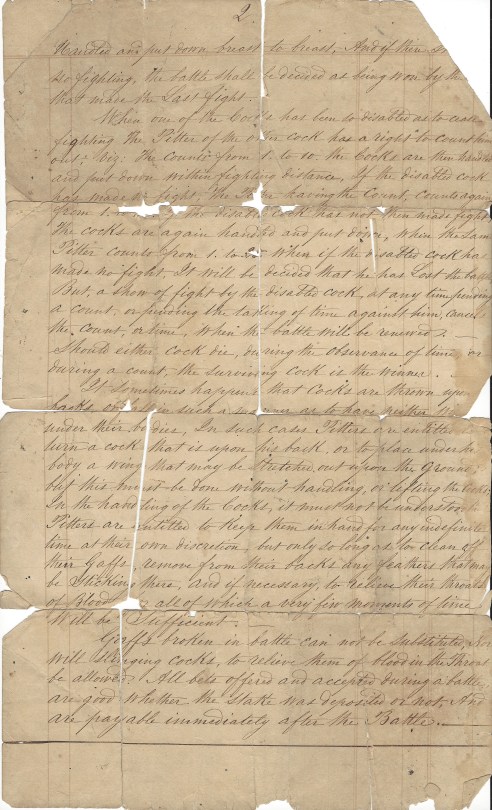 2.
Handled and put down breast to breast, And if then
so fighting, the battle shall be decided as being won by the
that made the Last fight.
When one of the Cocks has been so disabled as to cease
fighting. The Pitter of the other cock has a right to count him
out; Viz: The counts from 1. to 10. the Cocks are then handled
and put down within fighting distance, If the disabled cock
has made no fight, The Pitter having the Count, counts again
from 1. the disabled cock has not then made fight
The cocks are again handled and put down, when the same
Pitter counts from 1. to when if the disabled cock has
made no fight, It will be decided that he has Lost the battle
But, a show of fight by the disabled cock, at any time pending
a count; or pending the taking of time against him, cancels
the, count, or time, When the battle will be renewed. —
Should either cock die, during the observance of time, or
during a count, the surviving cock is the winner. —
It sometimes happens that Cocks are thrown upon
backs, or in such a manner as to have either
under their bodies, In such cases Pitters are entitled
turn a cock that is upon his back, or to place under
body a wing that may be stretched, out upon the Ground,
but this must be done without handling, or lifting the Cocks.
In the handling of the Cocks, it must not be understood
Pitters are entitled to keep them in hand for any indefinite
time at their own discretion, but only so long as to clean off
their Gaffs, remove from their backs any feathers that may
be sticking there, and if necessary, to relieve their throats
of Blood all of which a very few moments of time
Will be Sufficient. —
Gaffs broken in battle can not be substituted, Nor
will slinging cocks, to relieve them of blood in the throat
be allowed. All bets offered and accepted during a battle,
are good whether the Stake was deposited or not. And
are payable immediately after the Battle. —